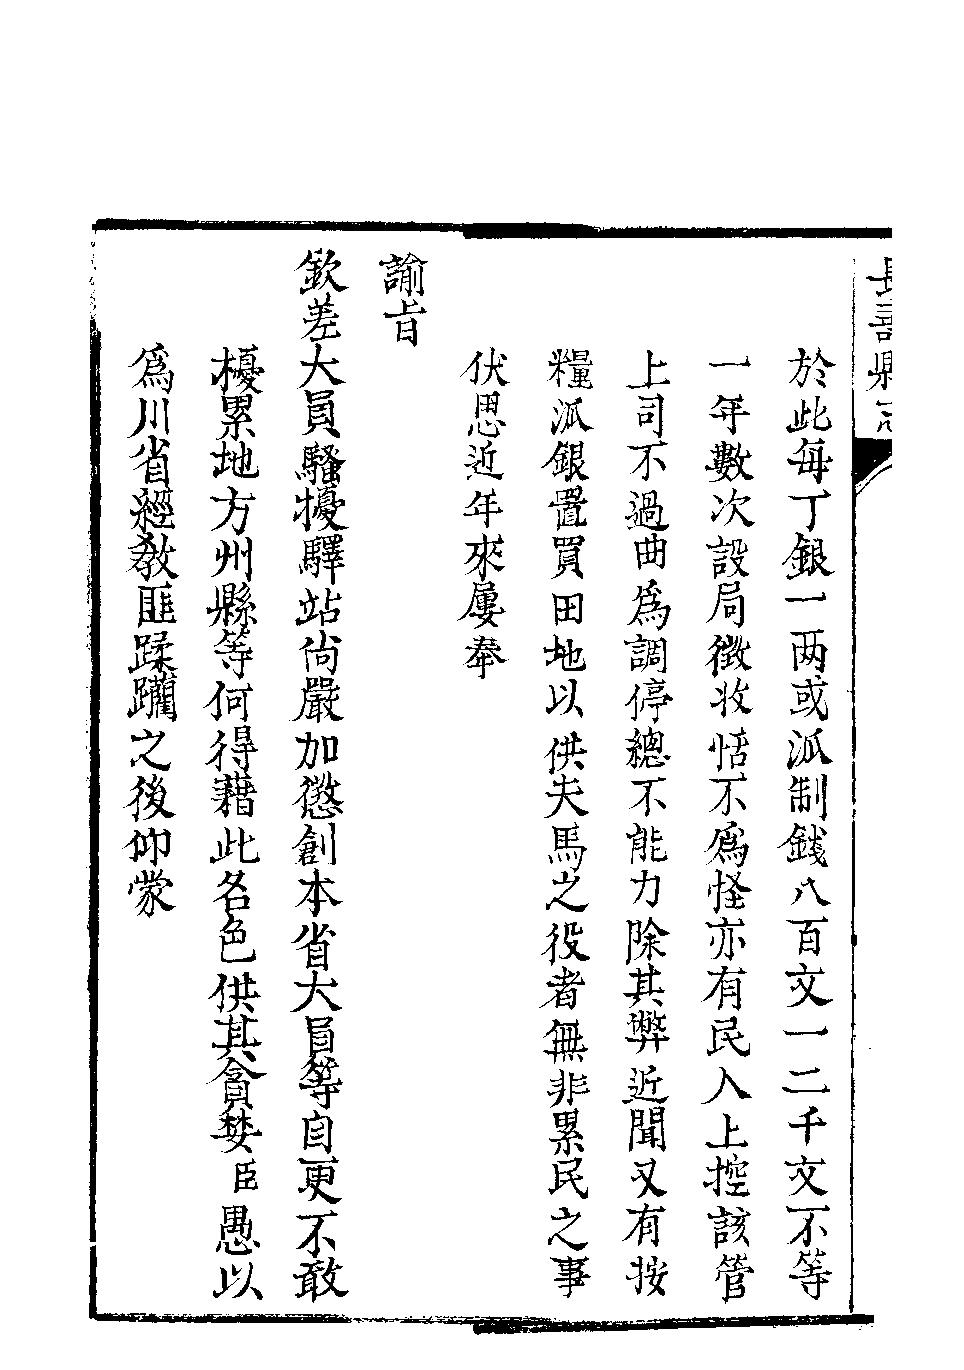 長壽縣志
於此每丁銀一两或派制錢八百文一二千文不等
一年數次設局徵收恬不爲怪亦有民人上控該管
上司不過曲爲調停總不能力除其弊近聞又有按
糧派銀置買田地以供夫馬之役者無非累民之事
伏思近年來屢奉
諭旨
欽差大員騷擾驛站尙嚴加懲創本省大員等自更不敢
擾累地方州縣等何得藉此名色供其貪婪臣愚以
爲川省經敎匪蹂躪之後仰蒙